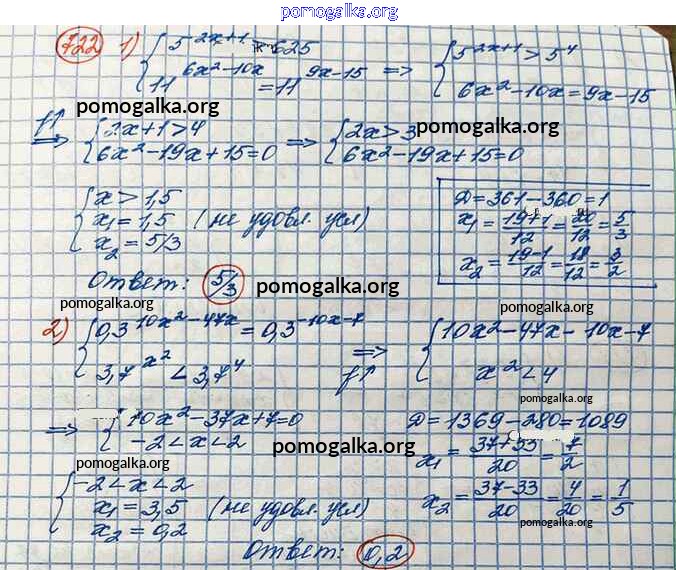 pomogalka.org
722 1) { 5^{2x+1} > 625
11^{6x²-10x} = 11^{9x-15} => { 5^{2x+1} > 5⁴
6x²-10x = 9x-15
pomogalka.org
f↑ => { 2x+1>4
6x²-19x+15=0 => { 2x>3
6x²-19x+15=0
pomogalka.org
{ x > 1,5
x₁ = 1,5 (не удовл. усл)
x₂ = 5/3
Д = 361-360 = 1
x₁ = (19+1)/12 = 20/12 = 5/3
x₂ = (19-1)/12 = 18/12 = 3/2
Ответ: 5/3
pomogalka.org
pomogalka.org
pomogalka.org
2) { 0,3^{10x²-47x} = 0,3^{-10x-7}
3,7^{x²} < 3,7⁴ f↑ => { 10x²-47x-10x-7
x² < 4
pomogalka.org
=> { 10x²-37x+7=0
-2<x<2
Д = 1369-280 = 1089
x₁ = (37+33)/20 = 7/2
x₂ = (37-33)/20 = 4/20 = 1/5
pomogalka.org
pomogalka.org
pomogalka.org
{ -2<x<2
x₁ = 3,5 (не удовл. усл)
x₂ = 0,2
pomogalka.org
pomogalka.org
Ответ: 0,2